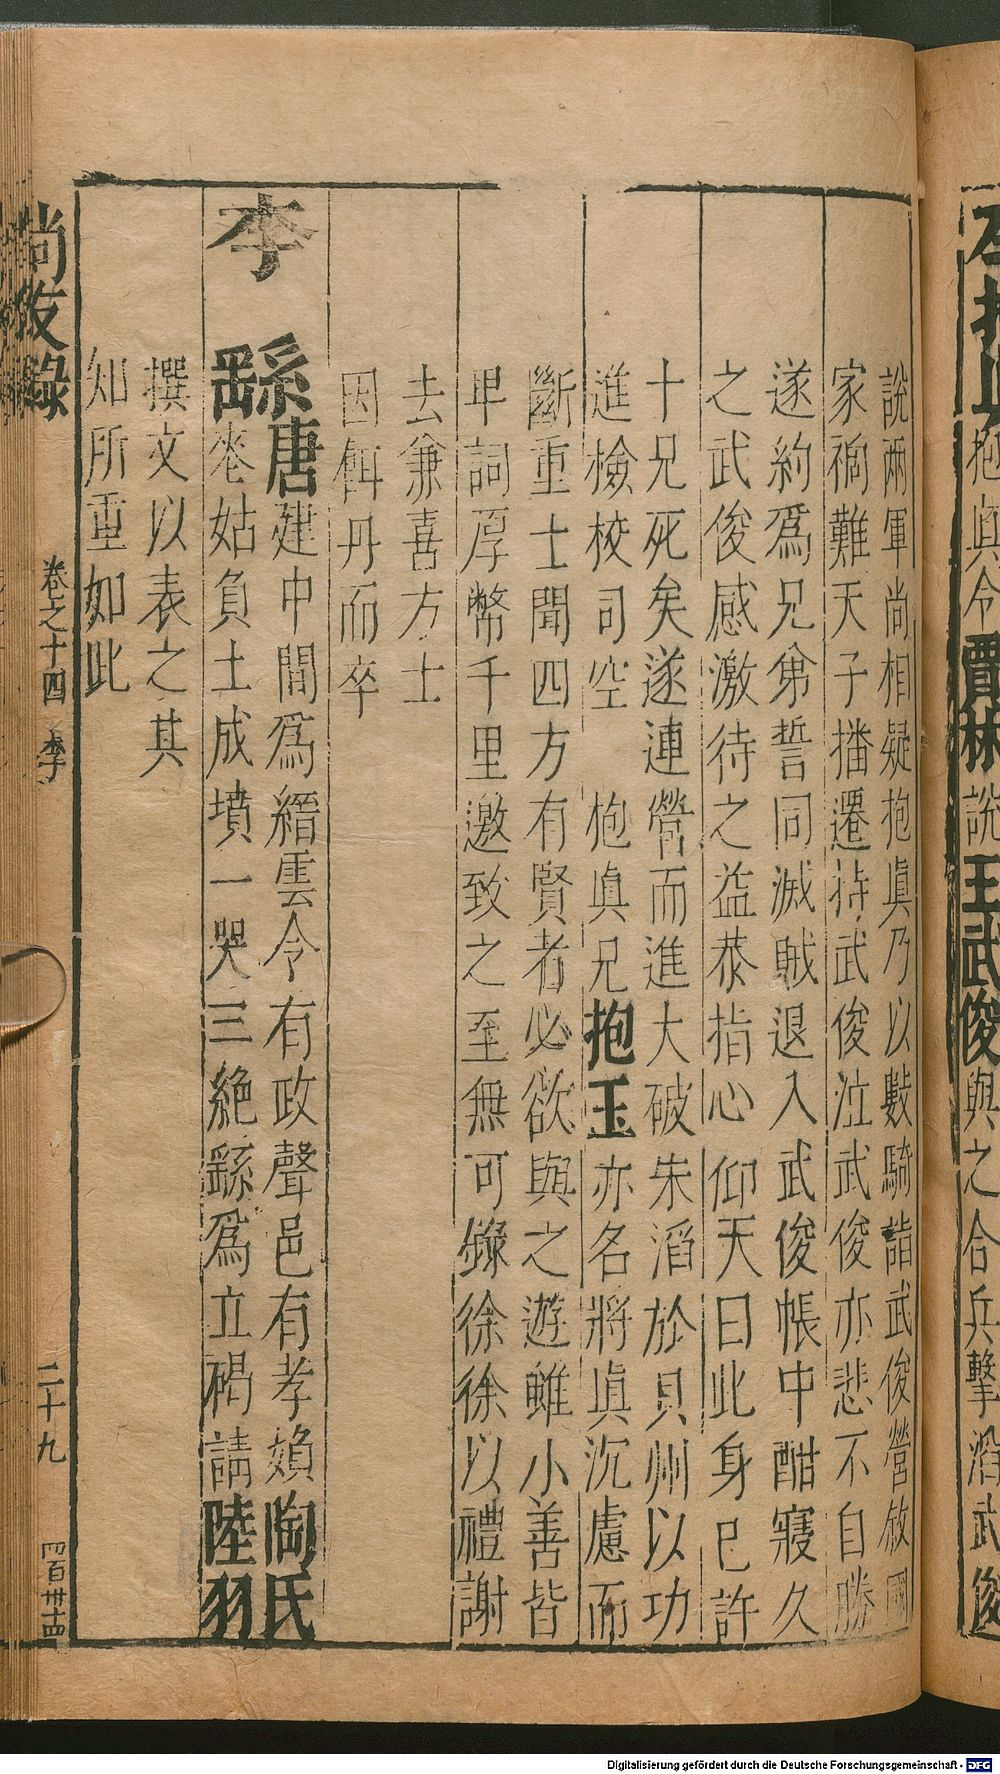 抱眞令賈林說王武俊與之合兵擊滔武俊
說兩軍尚相疑抱眞乃以數騎詣武俊營敘國
家禍難天子播遷持武俊泣武俊亦悲不自勝
遂約爲兄弟誓同滅賊退入武俊帳中酣寢久
之武俊感激待之益恭指心仰天曰此身已許
十兄死矣遂連營而進大破朱滔於貝州以功
進檢校司空 抱眞兄抱玉亦名將眞沉慮而
斷重士聞四方有賢者必欲與之遊雖小善皆
卑詞厚幣千里邀致之至無可錄徐徐以禮謝
去兼喜方士
因餌丹而卒
李 繇 唐建中間爲縉雲令有政聲邑有孝媍陶氏
姑負土成墳一哭三絕繇爲立碣請陸羽
撰文以表之其
知所重如此
尚友錄 卷之十四 李 二十九 四百卅四
Digitalisierung gefördert durch die Deutsche Forschungsgemeinschaft - DFG